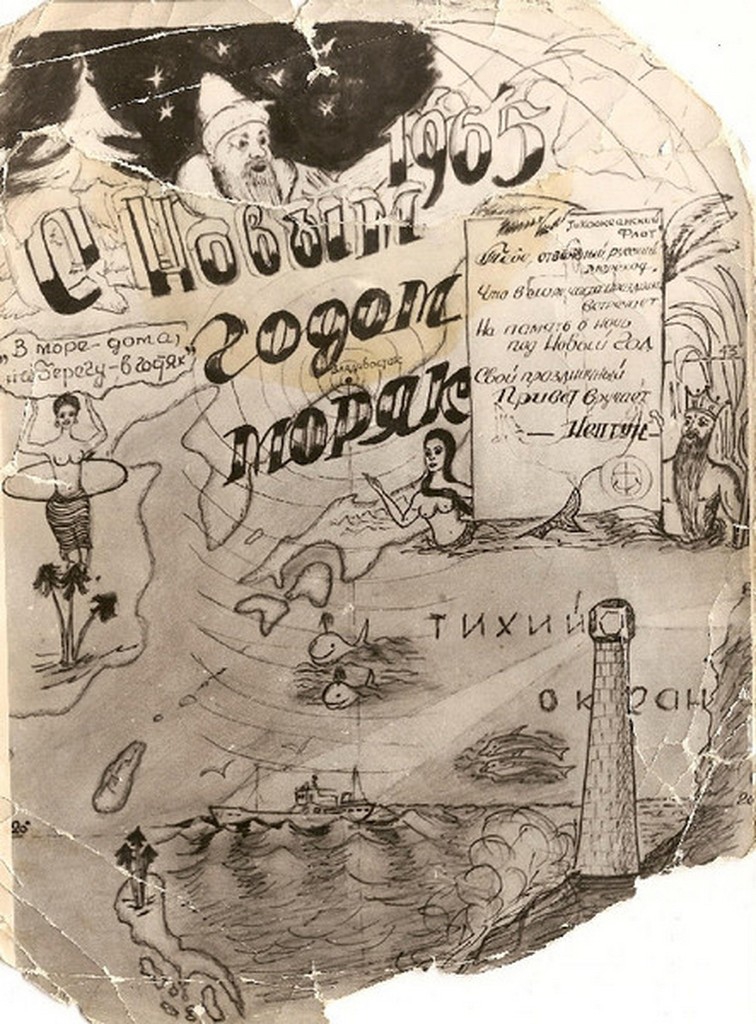 1965
С Новым
годом
моряк
Тихоокеанский
Флот
Тебе, отважный русский
мореход,
Что в океане праздник
встречает
На память о ночи
под Новый Год
Свой праздничный
Привет вручает
— Нептун —
„В море - дома,
на берегу - в гостях"
Владивосток
43°
Тихий
океан
20°